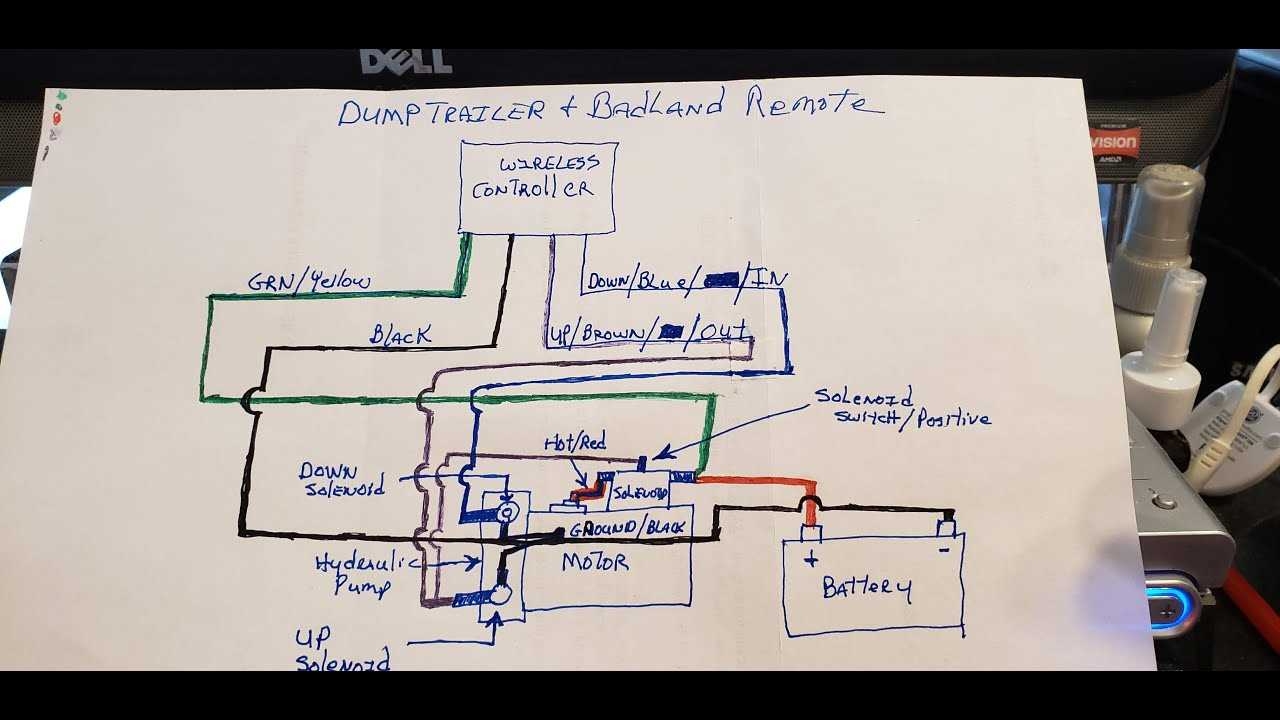 DELL
DUMP TRAILER + BADLAND REMOTE
PREMIUM
VISION
AMD
WIRELESS
CONTROLLER
GRN/Yellow
DOWN/Blue/ /IN
BLACK
UP/BROWN/ /OUT
SOLENOID
SWITCH/POSITIVE
Hot/Red
DOWN
SOLENOID
SOLENOID
GROUND/BLACK
MOTOR
Hyderulic
Pump
+
-
BATTERY
UP
SOLENOID